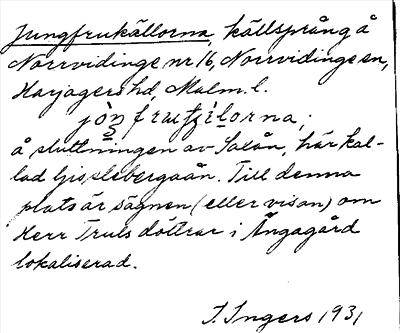 Jungfrukällorna, källsprång å
Norrvidinge nr 16, Norrvidinge sn,
Harjagers hd, Malm. l.
å sluttningen av Saxån, här kal-
lad Gisslebergaån. Till denna
plats är sägnen (eller visan) om
Herr Truls döttrar i Ängagård
lokaliserad.
I. Ingers 1931